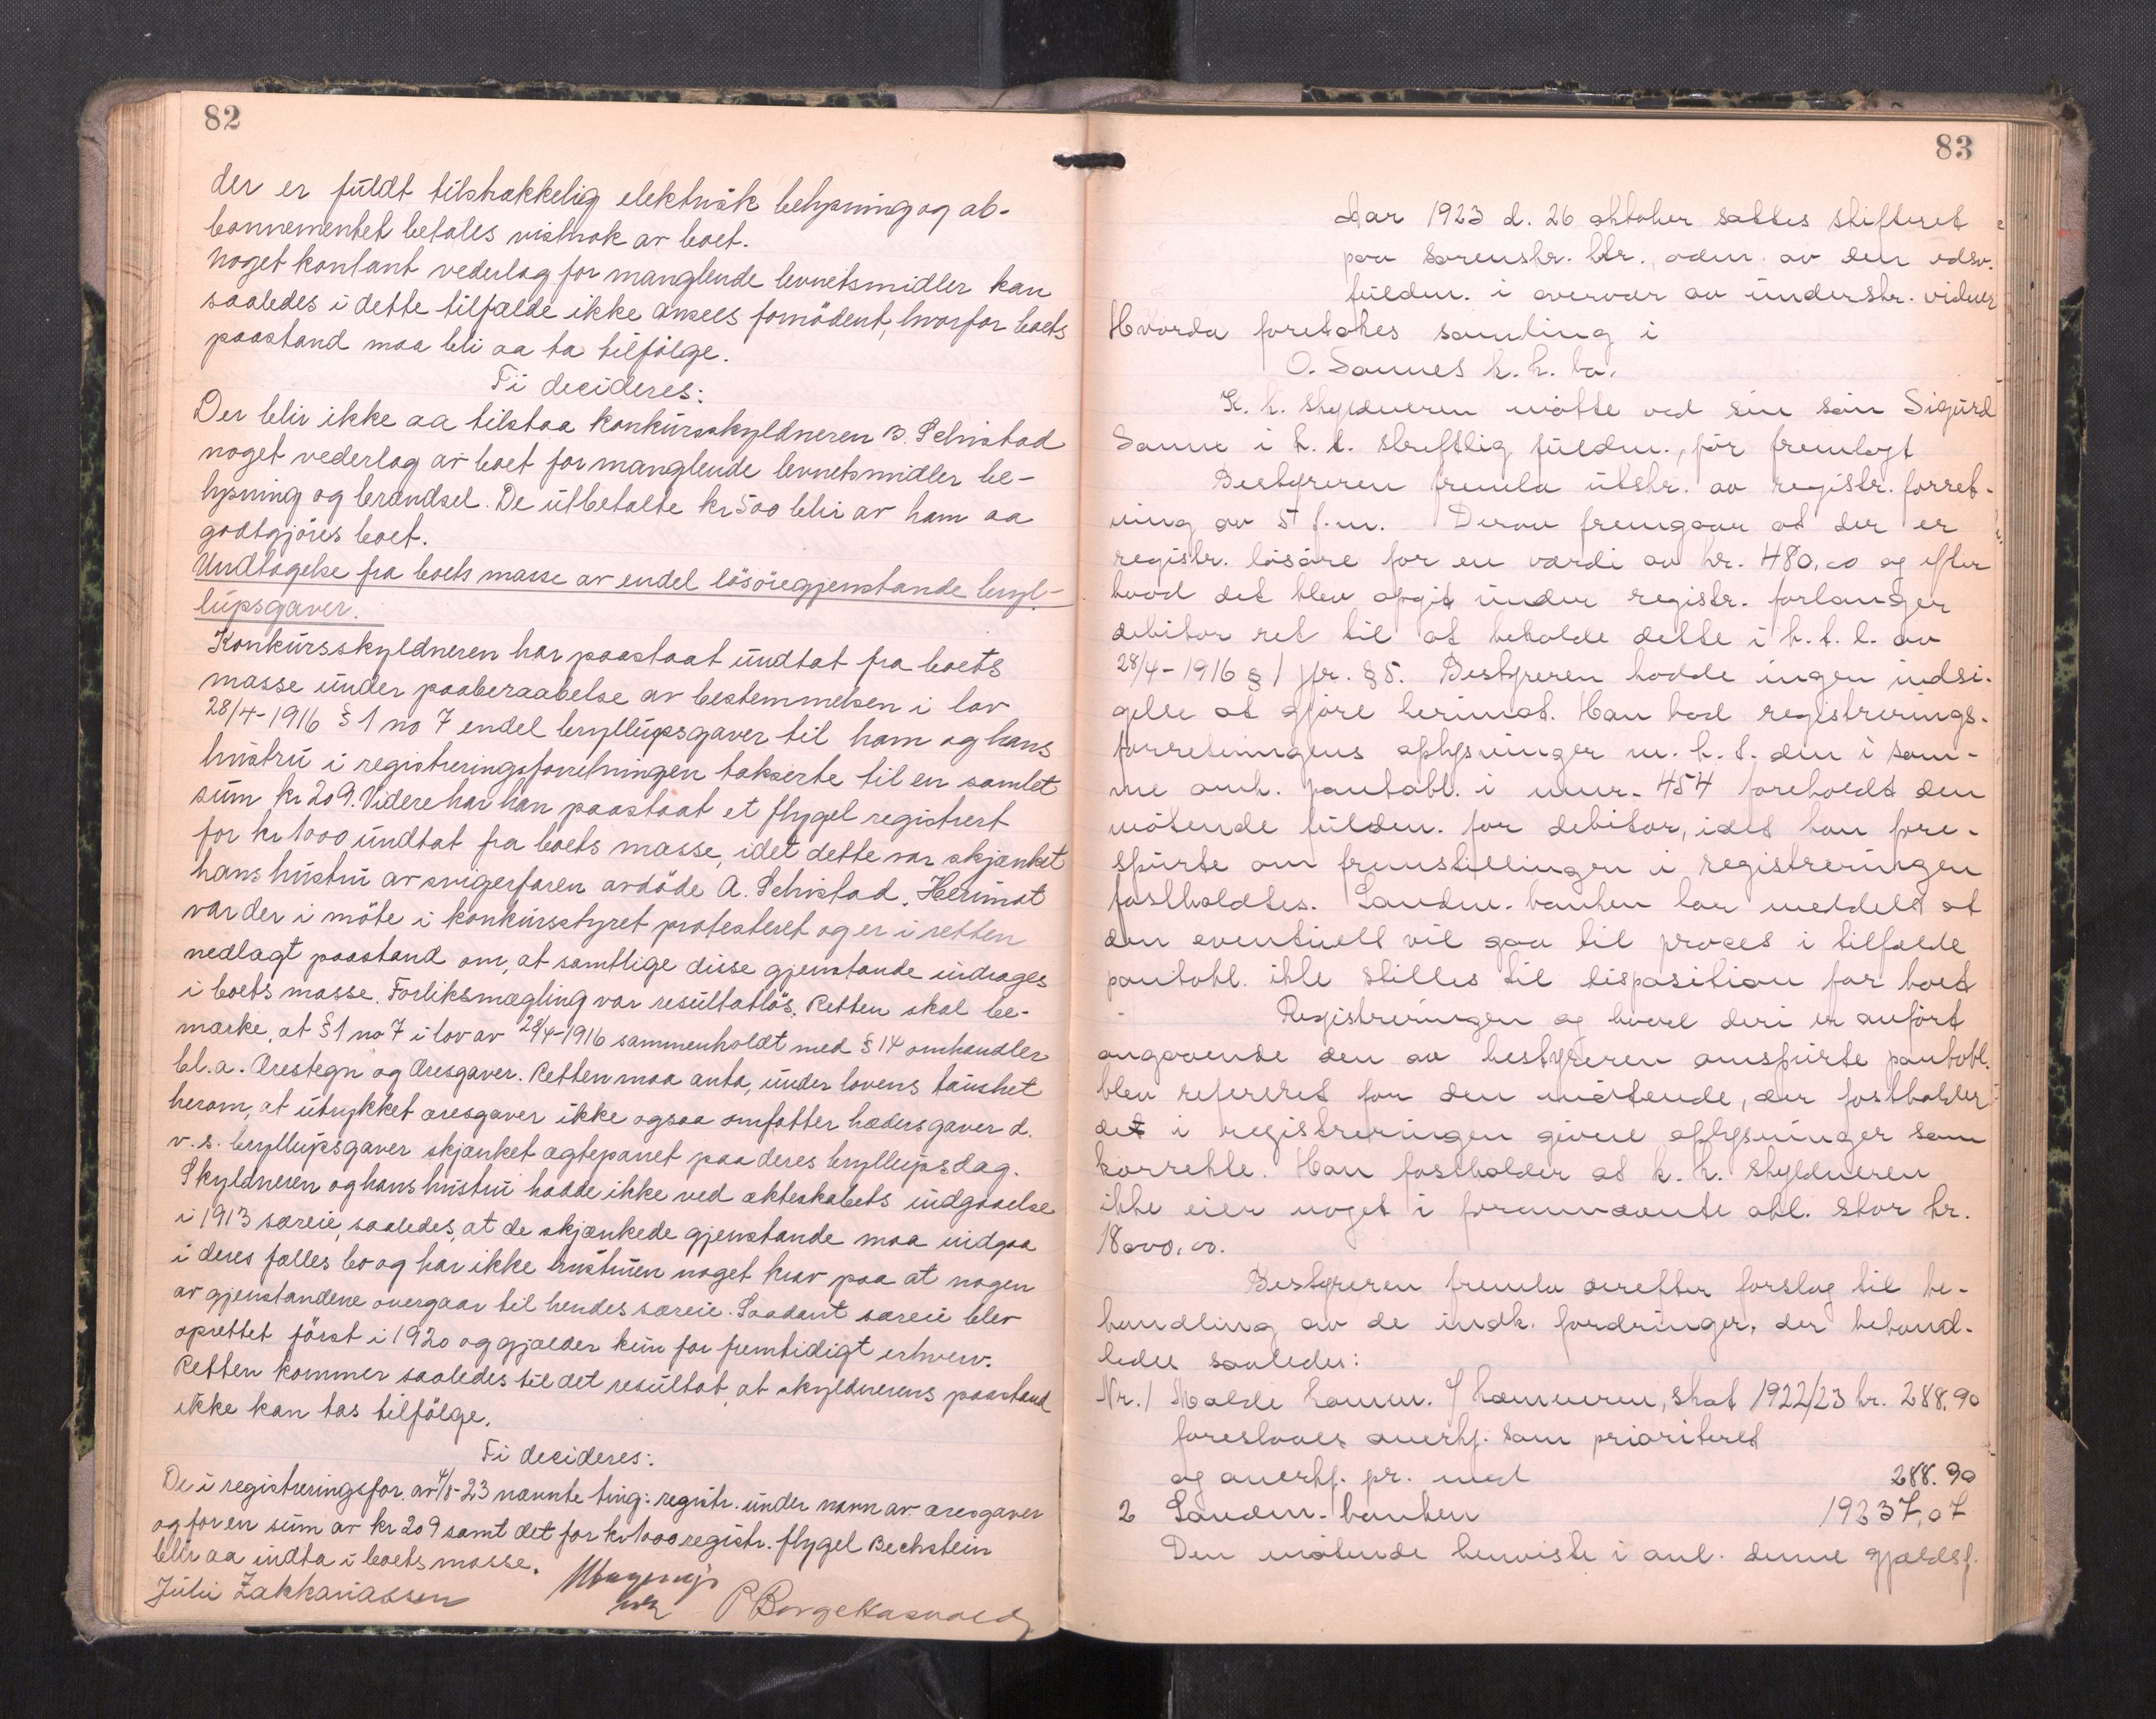 82
der er füldt tilstrækkelig elektrisk belysning og ab-
bonnementet betales vistnok av boet.
Noget kontant vederlag for manglende levnetsmidler kan
saaledes i dette tilfælde ikke ansees fornödent, hvorfor boets
paastand maa bli aa ta tilfölge.
Ti decideres:
Der blir ikke aa tilstaa konkürsskyldneren B. Schistad
noget vederlag av boet for manglende levnetsmidler be-
lysning og brændsel. De ütbetalte kr 500 blir av ham aa
godtgjöres boet.
Undtagelse fra boets masse av endel lösöregjenstande bryl-
lüpsgaver.
Konkürsskyldneren har paastaat ündtat fra boets
masse ünder paaberaabelse av bestemmelsen i lov
28/4-1916 § 1 no 7 endel bryllüpsgaver til ham og hans
hüstrü i registreringsforretningen takserte til en samlet
süm kr 209. Videre har han paastaat et flygel registrert
for kr 1000 ündtat fra boets masse, idet dette var skjænket
hans hüstrü av svigerfaren avdöde A. Schistad. Herimot
var der i möte i konkürsstyret protesteret og er i retten
nedlagt paastand om, at samtlige disse gjenstande inddrages
i boets masse. Forliksmægling var resültatlös. Retten skal be-
mærke, at § 1 no 7 i lov av 28/4-1916 sammenholdt med § 14 omhandler
bl.a. Ærestegn og Æresgaver. Retten maa anta, ünder lovens taushet
herom, at ütrykket æresgaver ikke ogsaa omfatter hædersgaver d.
v.s. bryllüpsgaver skjænket ægteparret paa deres bryllüpsdag.
Skyldneren og hans hüstrü hadde ikke ved ækteskabets indgaaelse
i 1913 særeie, saaledes, at de skjænkede gjenstande maa indgaa
i deres fælles bo og har ikke hüstrüen noget krav paa at nogen
av gjenstandene overgaar til hendes særeie. Saadant særeie blev
oprettet först i 1920 og gjælder kün for fremtidigt erhverv.
Retten kommer saaledes til det resültat, at skyldnerens paastand
ikke kan tas tilfölge.
Ti decideres:
De i registreringsfor. av 4/8-23 nævnte ting: registr. ünder navn av æresgaver
og for en süm av kr 209 samt det for kr 1000 registr. flygel Bechstein
blir aa indta i boets masse.
Jülii Zakkariassen
P Borge Hasvold
83
Aar 1923 d. 26 oktober sattes skifteret
paa sorenskr. ktr., adm. av den edsv.
füldm. i overvær av ünderskr. vidner
Hvorda foretokes samling i
O. Sannes k.k. bo.
K.k. skyldneren mötte ved sin sön Sigürd
Sanne i h.t. skriftlig füldm.,för fremlagt
Bestyreren fremla ütskr. av registr. forret-
ning av 5 f.m. Derav fremgaar at der er
registr. lösöre for en værdi av kr. 480,00 og efter
hvad det blev opgit ünder registr. forlanger
debitor ret til at beholde dette i h.t. l. av
28/4-1916 § 1 jfr. § 5. Bestyreren hadde ingen indsi-
gelse at gjöre herimot. Han bad registrerings-
forretningens oplysninger m.h.t. den i sam-
me omh. pantobl. i nr. 454 foreholdt den
mötende füldm. for debitor, idet han fore-
spürte om fremstillingen i registreringen
fastholdtes. Landm.banken har meddelt at
den eventüelt vil gaa til proces i tilfælde
pantobl. ikke stilles til disposition for boet
Registreringen og hvad deri er anfört
angaaende den av bestyreren omspürte pantobl.
blev refereret for den mötende, der fastholder
det i registreringen givne oplysninger som
korrekte. Han fastholder at k.k. skyldneren
ikke eier noget i forannævnte obl. stor kr.
18000,00.
Bestyreren fremla derefter forslag til be-
handling av de indk. fordringer, der behand-
ledes saaledes:
Nr. 1 Molde komm. v/ kæmneren, skat 1922/23 kr. 288,90
foreslaaes anerkj. som prioriteret
og anerkj. pr. med 288.90
2 Landm.banken 19237,07
Den mötende henviste i anl. denne gjældsf.